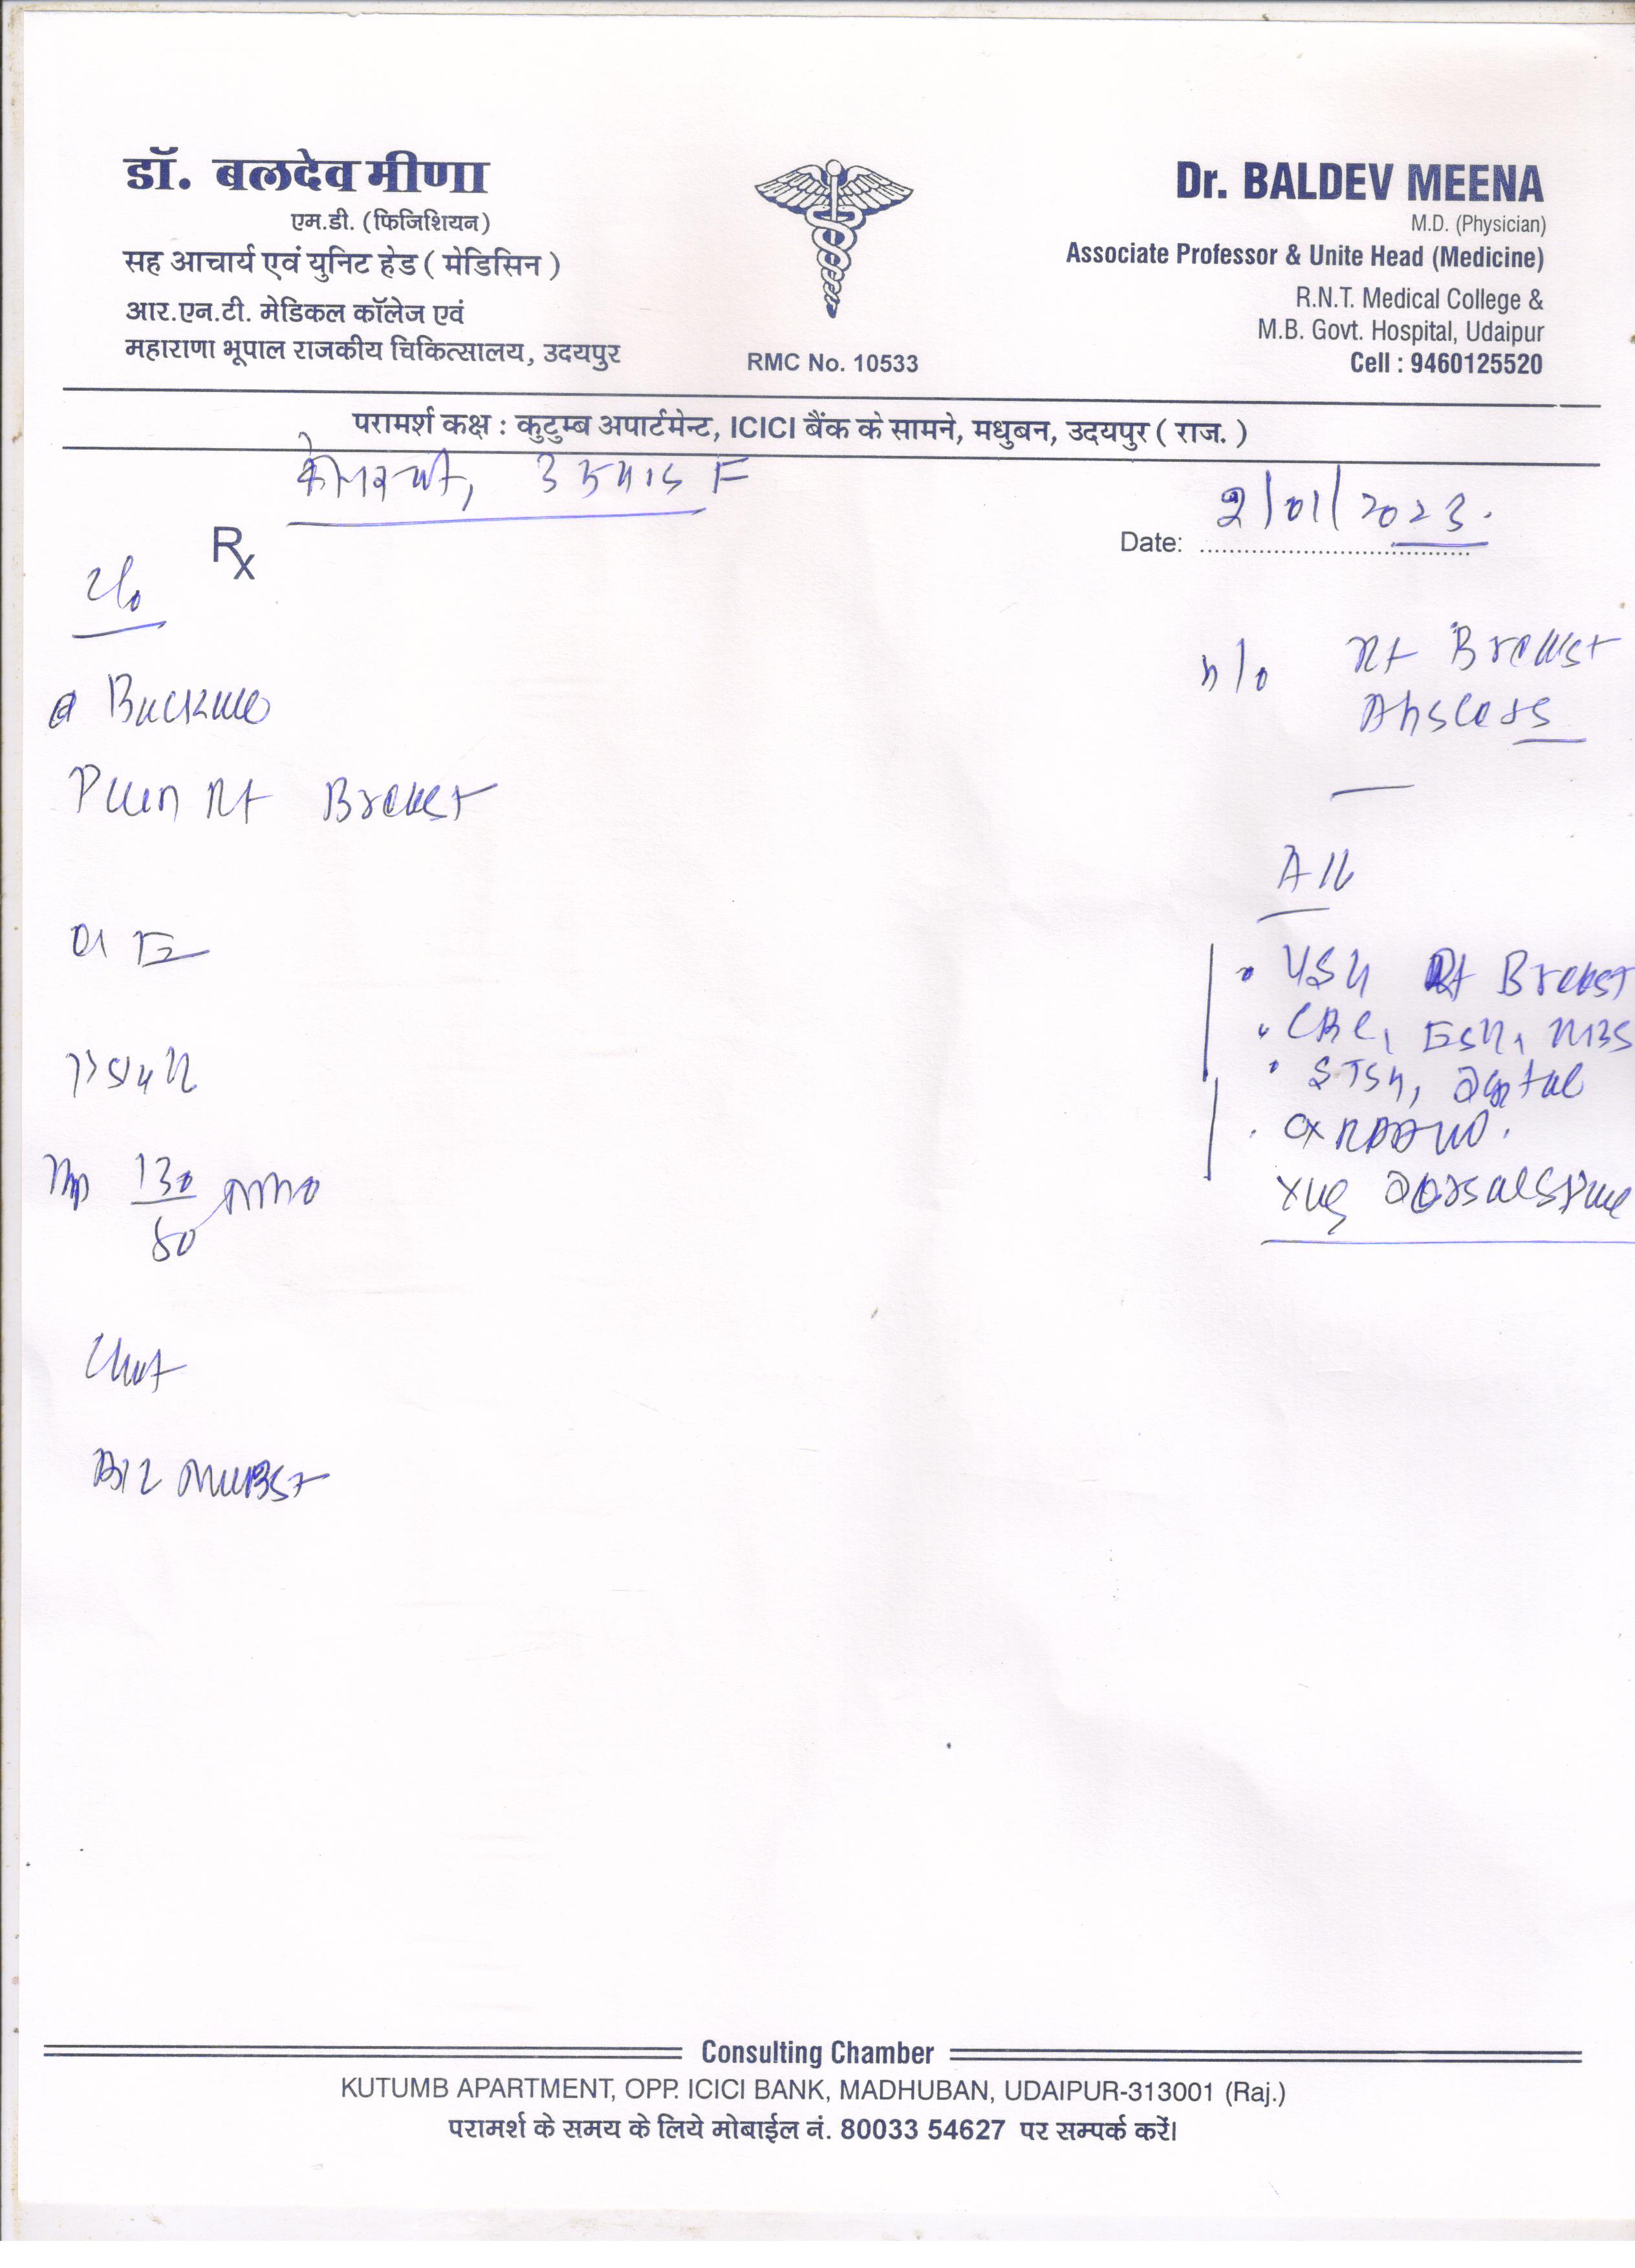 डॉ. बलदेव मीणा
एम.डी. (फिजिशियन)
सह आचार्य एवं युनिट हेड ( मेडिसिन )
आर.एन.टी. मेडिकल कॉलेज एवं
महाराणा भूपाल राजकीय चिकित्सालय, उदयपुर
RMC No. 10533
Dr. BALDEV MEENA
M.D. (Physician)
Associate Professor & Unite Head (Medicine)
R.N.T. Medical College &
M.B. Govt. Hospital, Udaipur
Cell : 9460125520
परामर्श कक्ष : कुटुम्ब अपार्टमेन्ट, ICICI बैंक के सामने, मधुबन, उदयपुर ( राज. )
F
Rx
Date: 2/01/2023.
Pain Rt Breast
O/E
130
80
Chest
h/o Rt Breast
Abscess
USG Rt Breast
CBC, ESR, RBS
STSH,
X-ray Dorsal Spine
Consulting Chamber
KUTUMB APARTMENT, OPP. ICICI BANK, MADHUBAN, UDAIPUR-313001 (Raj.)
परामर्श के समय के लिये मोबाईल नं. 80033 54627 पर सम्पर्क करें।